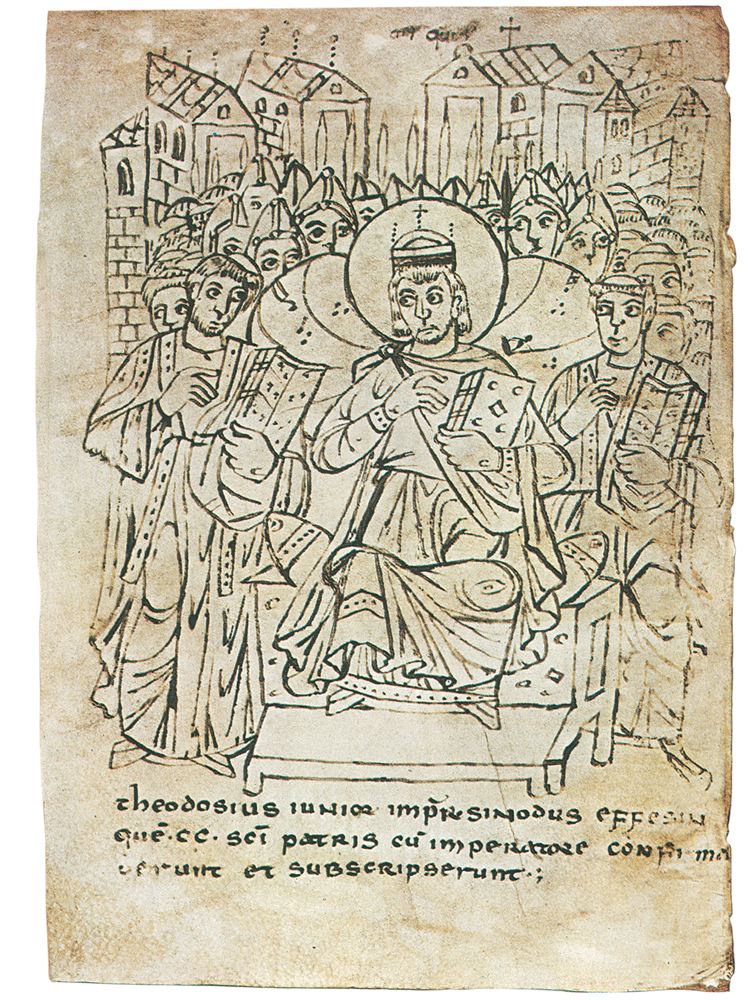 theodosius iunior imp̄r sinodus effesin
quē · cc · sc̄i patris cū imperatore confirma
verunt et subscripserunt · ;